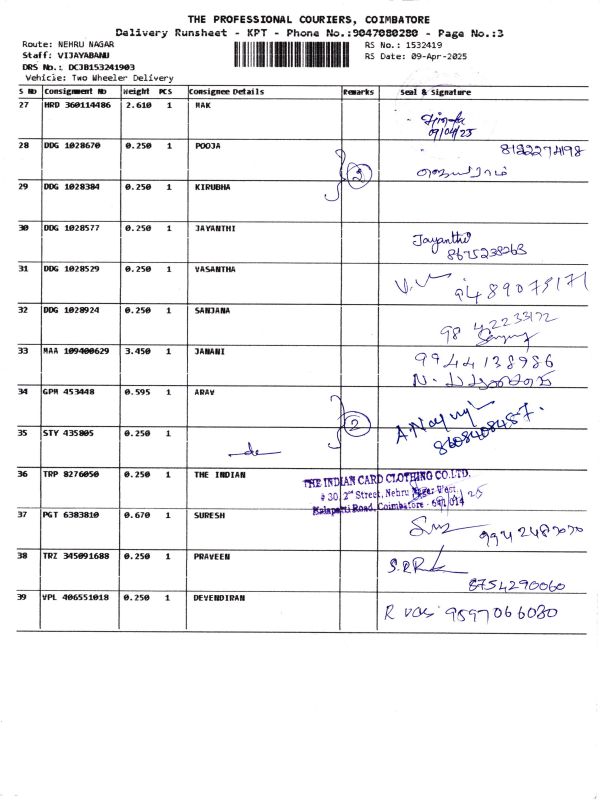 THE PROFESSIONAL COURIERS, COIMBATORE
Delivery Runsheet - KPT - Phone No.:9047080280 - Page No.:3
Route: NEHRU NAGAR
RS No.: 1532419
Staff: VIJAYABANU
RS Date: 09-Apr-2025
DRS No.: DCJB153241903
Vehicle: Two Wheeler Delivery
S No Consignment No Weight PCS Consignee Details Remarks Seal & Signature
27 HRD 360114486 2.610 1 MAK
09/04/25
28 DDG 1028670 0.250 1 POOJA 8122274198
2
29 DDG 1028384 0.250 1 KIRUBHA
30 DDG 1028577 0.250 1 JAYANTHI
Jayanthi
8675238263
31 DDG 1028529 0.250 1 VASANTHA
9489075171
32 DDG 1028924 0.250 1 SANJANA
98 42233172
33 MAA 109400629 3.450 1 JANANI 9944138986
34 GPM 453448 0.595 1 ARAV
2
8608408457.
35 STY 435805 0.250 1
do
36 TRP 8276050 0.250 1 THE INDIAN
THE INDIAN CARD CLOTHING CO.LTD.
# 30, 2nd Street, Nehru Nagar West,
Kalapatti Road, Coimbatore - 641 014
37 PGT 6383810 0.670 1 SURESH
38 TRZ 345091688 0.250 1 PRAVEEN
8754290060
39 VPL 406551018 0.250 1 DEVENDIRAN R vas 9597066080